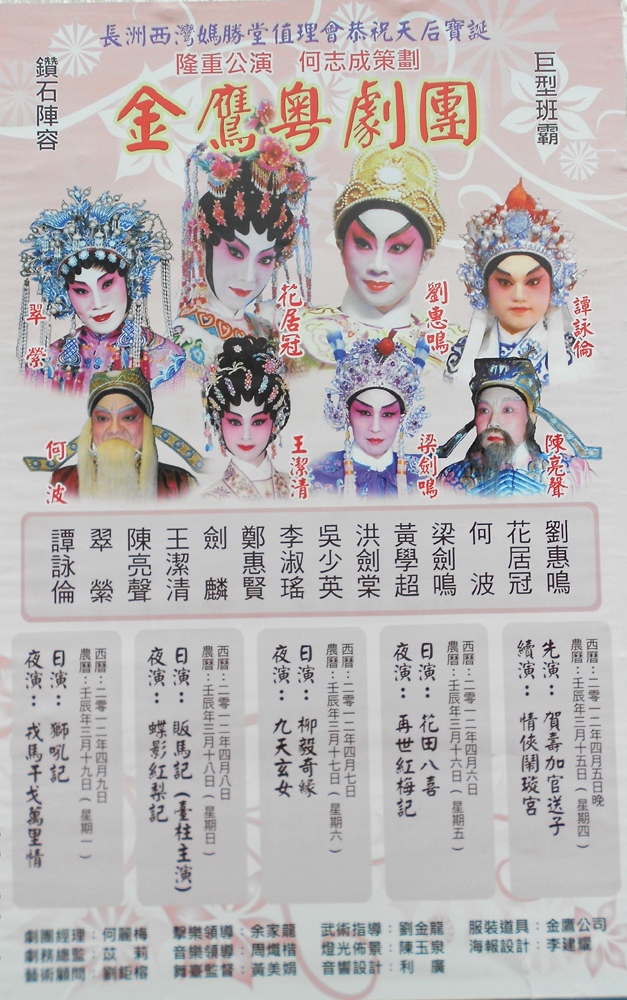 長洲西灣媽勝堂值理會恭祝天后寶誕
隆重公演　何志成策劃
鑽石陣容
巨型班霸
金鷹粵劇團
翠縈
花居冠
劉惠鳴
譚詠倫
何波
王潔清
梁劍鳴
陳亮聲
劉惠鳴
花居冠
何波
梁劍鳴
黃學超
洪劍棠
吳少英
李淑瑤
鄭惠賢
劍麟
王潔清
陳亮聲
翠縈
譚詠倫
西曆：二零一二年四月五日晚
農曆：壬辰年三月十五日（星期四）
先演：賀壽加官送子
續演：情俠鬧璇宮
西曆：二零一二年四月六日
農曆：壬辰年三月十六日（星期五）
日演：花田八喜
夜演：再世紅梅記
西曆：二零一二年四月七日
農曆：壬辰年三月十七日（星期六）
日演：柳毅奇緣
夜演：九天玄女
西曆：二零一二年四月八日
農曆：壬辰年三月十八日（星期日）
日演：販馬記（臺柱主演）
夜演：蝶影紅梨記
西曆：二零一二年四月九日
農曆：壬辰年三月十九日（星期一）
日演：獅吼記
夜演：戎馬干戈萬里情
劇團經理：何麗梅　擊樂領導：余家龍　武術指導：劉金龍　服裝道具：金鷹公司
劇務總監：苡莉　音樂領導：周熾楷　燈光佈景：陳玉泉　海報設計：李建耀
藝術顧問：劉鉅榕　舞臺監督：黃美娟　音響設計：利廣